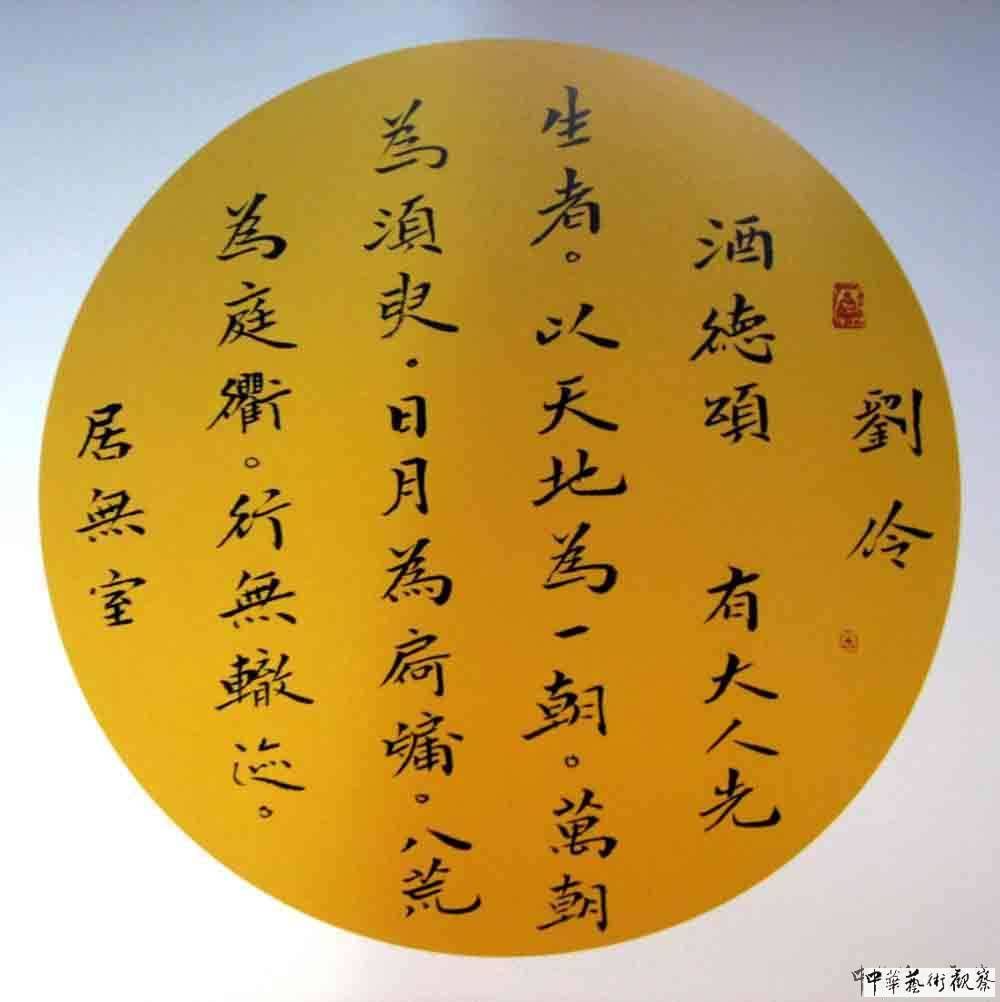 劉伶
酒德頌 有大人先
生者。以天地為一朝。萬朝
為湏臾。日月為扃牖。八荒
為庭衢。行無轍迹。
居無室
中華藝術観察